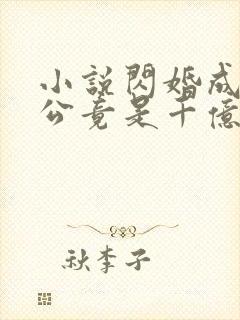 小說閃婚成
公竟是千億
秋李子